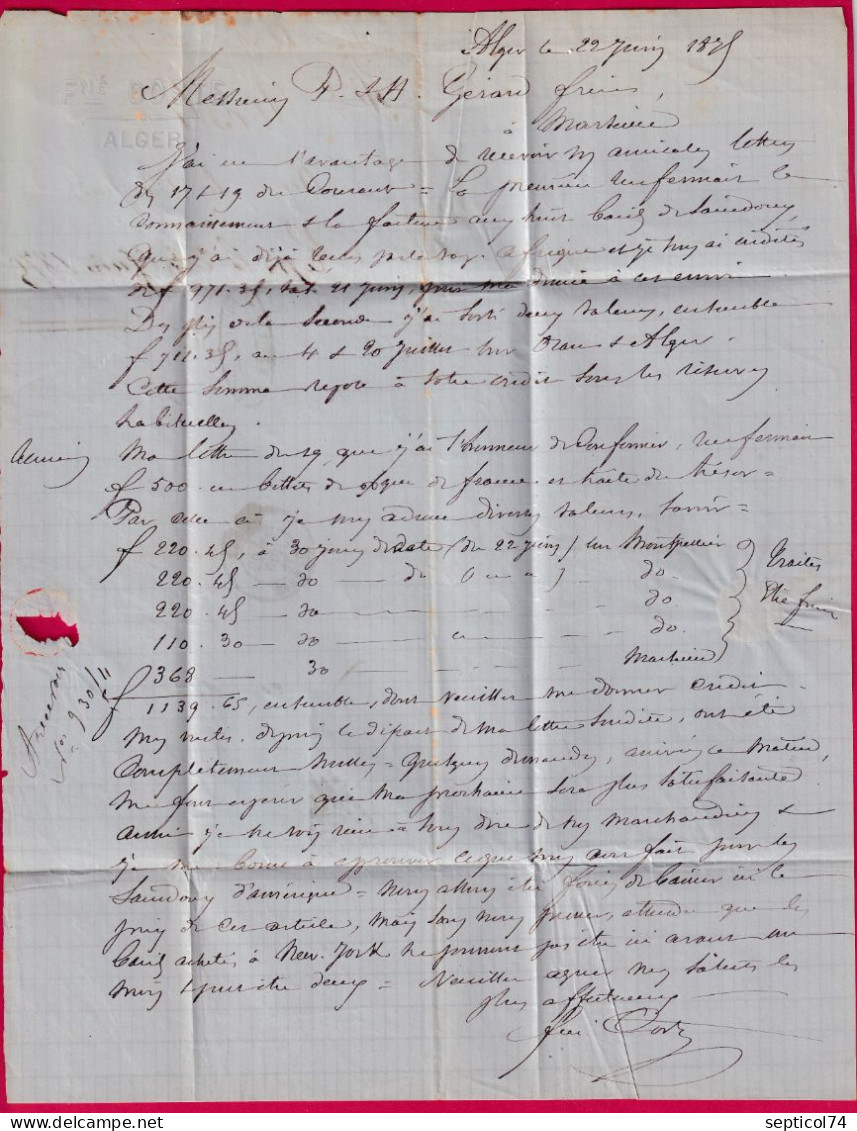 Alger le 22 juin 1875
Messieurs P. & A. Gérard frères,
à Marseille
ALGER
J'ai eu l'avantage de recevoir vos amicales lettres
des 17 & 19 du Courant = La première renfermait le
Connaissement & la facture aux huit Barils de Saindoux,
que j'ai déjà reçus par le vap. Afrique et je vous ai crédités
de f 971.35, val. 21 juin, pour
Des plis de la Seconde j'ai sorti deux valeurs, ensemble
f 711.35, au 4 & 20 Juillet sur Oran & Alger.
Cette Somme repose à votre crédit sous les réserves
habituelles.
Ma lettre du 19 que j'ai l'honneur de Confirmer, renfermait
f 500. en billets de Bque de France et traite du trésor =
Par celle ci je vous adresse diverses valeurs, Savoir =
f 220.45, à 30 jours de date (du 22 juin) sur Montpellier
220.45 — do — do — do
220.45 — do — — do
110.30 — do — — do
Traites
368 — 30 — Marseille
f 1139.65, ensemble, dont veuillez me donner crédit.
Mes ventes depuis le départ de ma lettre susdite, ont été
Complètement nulles = Quelques demandes, arrivées ce matin,
me font espérer que ma prochaine sera plus satisfaisante
aussi je ne vois rien à vous dire de vos marchandises &
je me borne à approuver ce que vous avez fait pour les
Saindoux d'Amérique = Nous allons être forcés de baisser ici le
prix de cet article, mais sans nous presser, attendu que les
Barils achetés à New-York ne pourront pas être ici avant un
mois & peut être deux = Veuillez agréer mes Saluts les
plus affectueux
septicol74